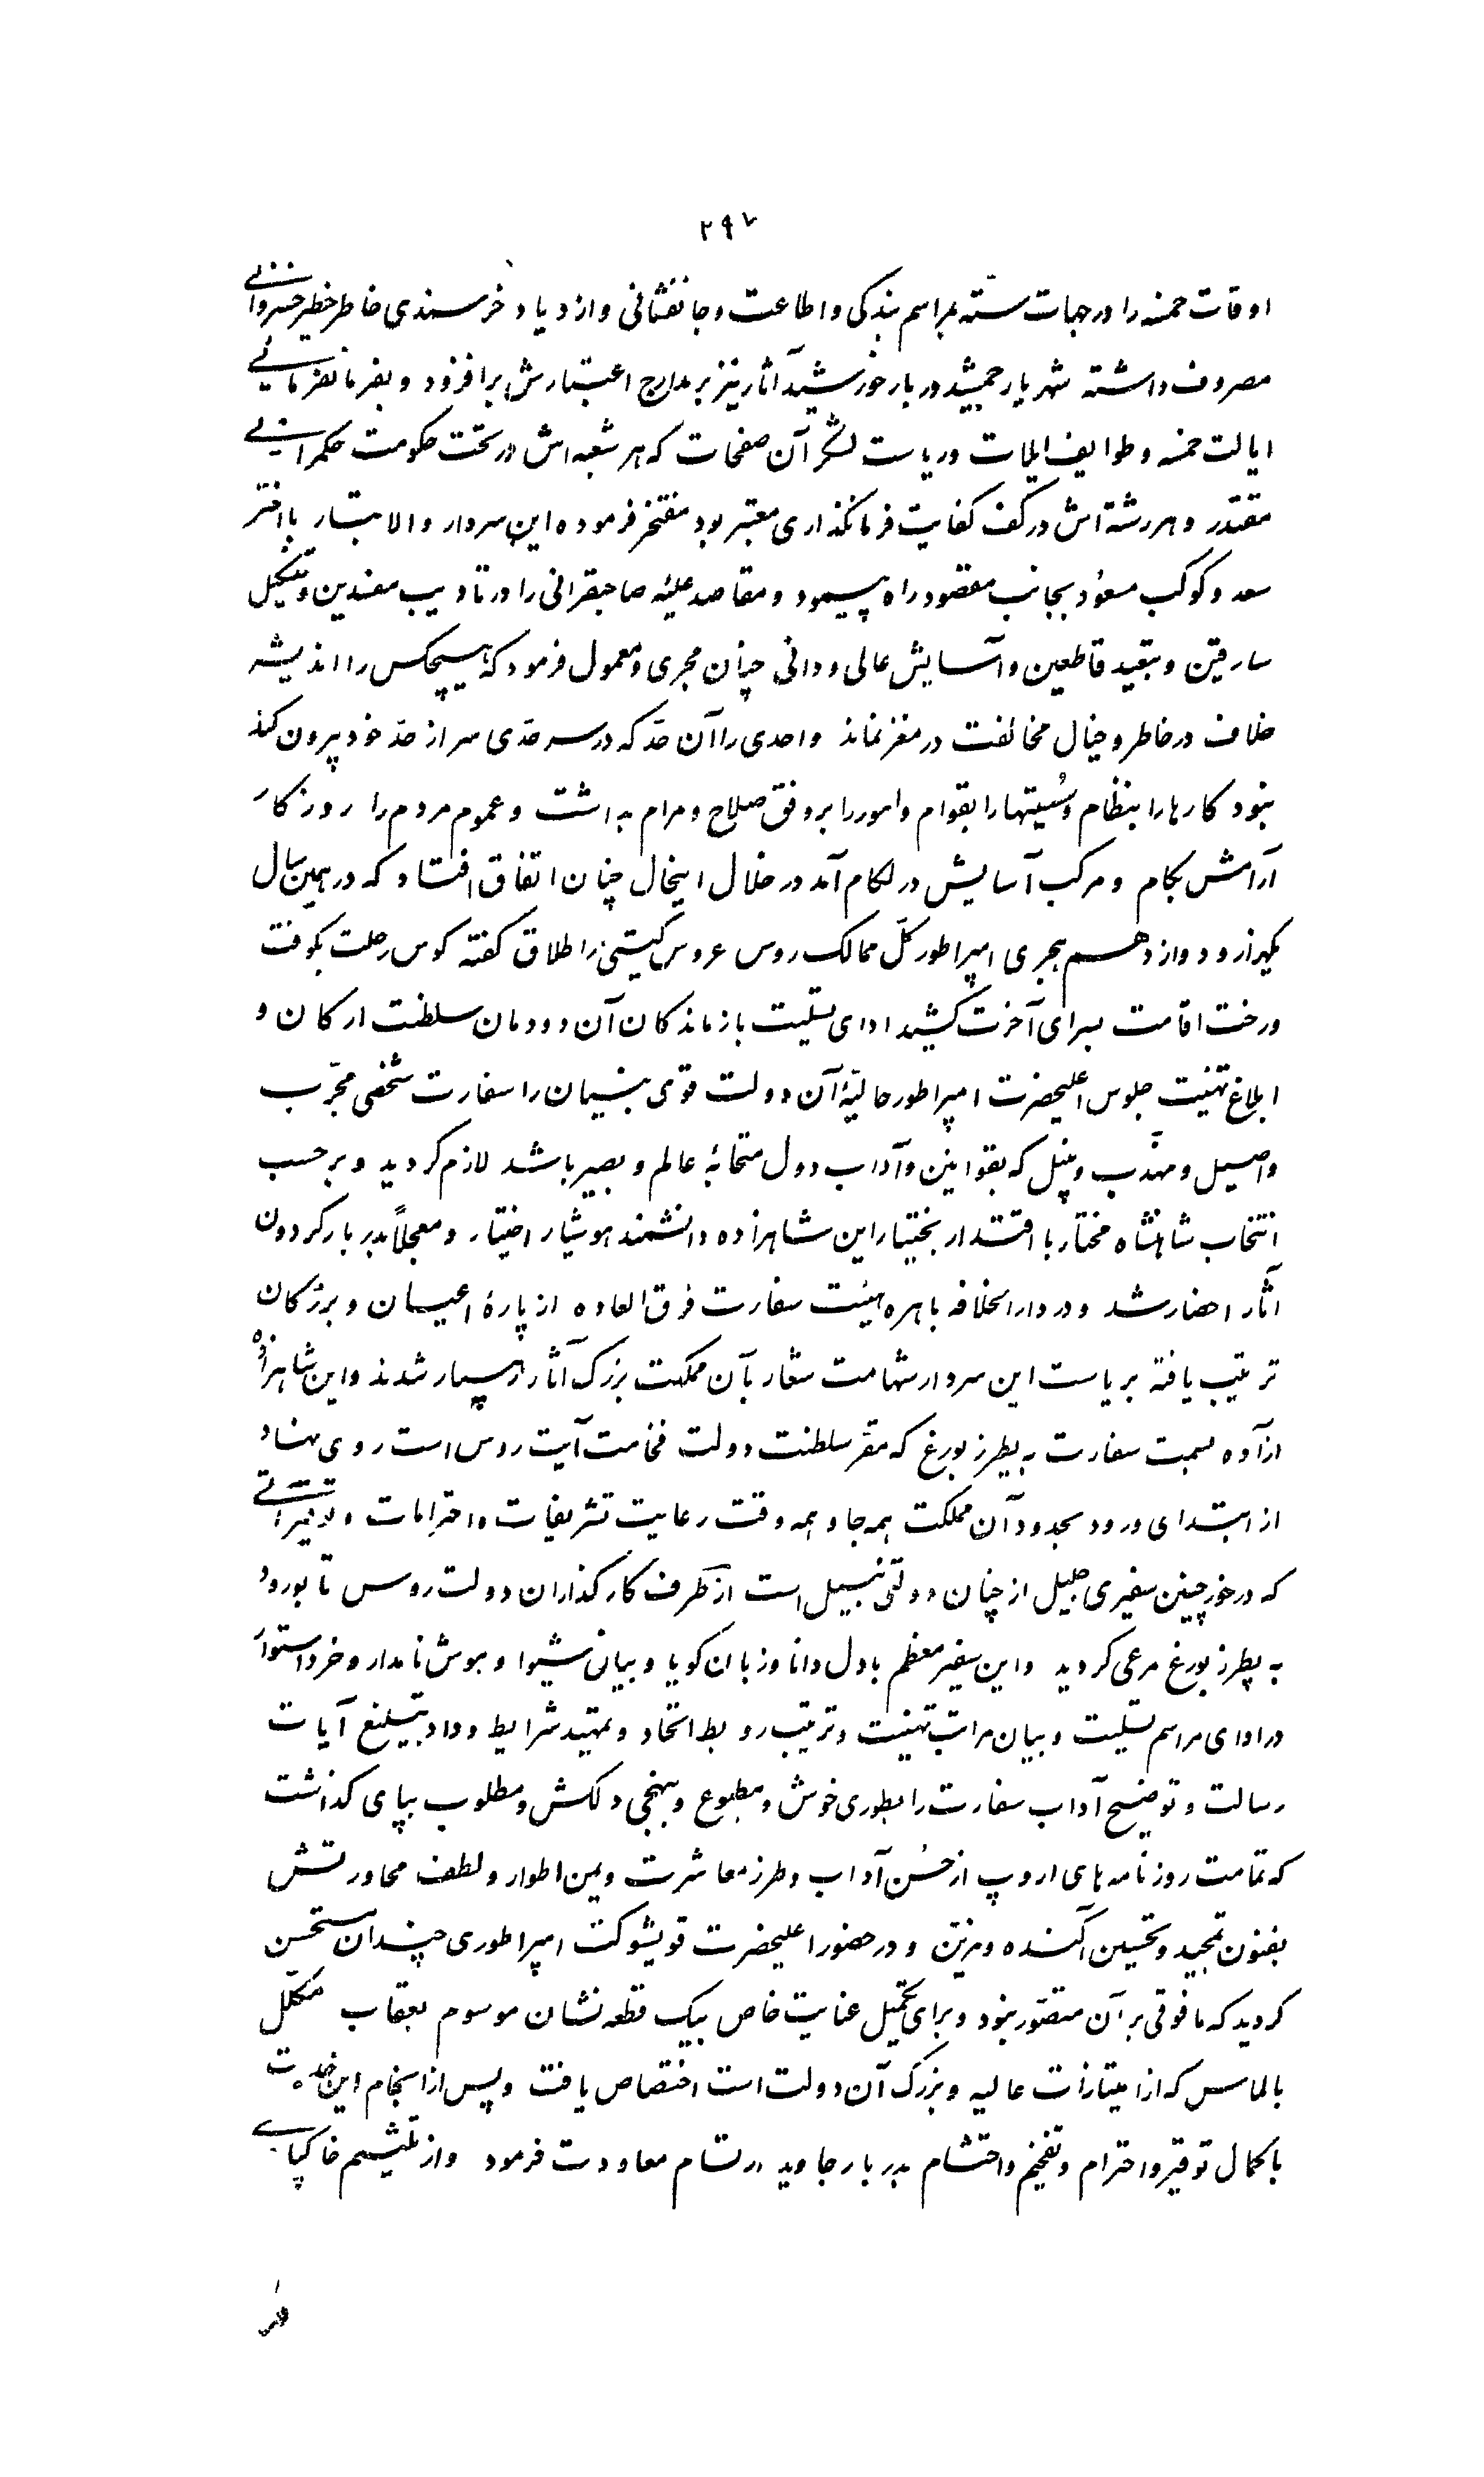 ۲۹۷
اوقات خمسه را در جهات ستّه بمراسم بندگی و اطاعت و جانفشانی و ازدیاد خرسندی خاطر خطیر خسروانی
مصروف داشته شهریار جمشید دربار خورشید آثار نیز بر مدارج اعتبارش برافزود و بفرمانفرمائی
ایالت خمسه و طوایف ایلات و ریاست لشگر آن صفحات که هر شعبه اش در تحت حکومت حکمرانی
مقتدر و هر رشته اش در کف کفایت فرمانگذاری معتبر بود مفتخر فرموده این سردار والاتبار با اختر
سعد و کوکب مسعود بجانب مقصود راه پیمود و مقاصد علیّه صاحبقرانی را در تادیب مفسدین و تنکیل
سارقین و تبعید قاطعین و آسایش عالی و دانی چنان مجری و معمول فرمود که هیچکس را اندیشه
خلاف در خاطر و خیال مخالفت در مغز نماند واحدی را آن حدّ که در سرحدّی سر از حدّ خود بیرون کند
نبود کارها را بنظام و سُنیتها را بقوام و امور را بر وفق صلاح و مرام بداشت و عموم مردم را روزکار
آرامش بکام و مرکب آسایش در لکام آمد در خلال اینحال چنان اتفاق افتاد که در همین سال
یکهزار و دوازدهم هجری امپراطور کلّ ممالک روس عروس گیتی را طلاق گفته کوس رحلت بکوفت
و رخت اقامت بسرای آخرت کشید ادای تسلیت بازماندکان آن دودمان سلطنت ارکان و
ابلاغ تهنیت جلوس اعلیحضرت امپراطور حالیّهٔ آن دولت قوی بنیان را سفارت شخصی مجرّب
و اصیل و مهذّب و نبیل که بقوانین و آداب دول متحابّهٔ عالم و بصیر باشد لازم گردید و بر حسب
انتخاب شاهنشاه مختار با اقتدار بختیار این شاهزاده دانشمند هوشیار اختیار و معجلاً بدربار گردون
آثار احضار شد و در دارالخلافه باهره هیئت سفارت فوق العاده از پارهٔ اعیان و بزرکان
ترتیب یافته بریاست این سردار شهامت شعار بآن مملکت بزرک آثار رهسپار شدند و این شاهزاده
آزاده بسمت سفارت به پطرزبورغ که مقر سلطنت دولت فخامت آیت روس است روی نهاد
از ابتدای ورود بحدود آن مملکت همه جا و همه وقت رعایت تشریفات و احترامات و توقیراتی
که در خور چنین سفیری جلیل از چنان دولتی نبیل است از طرف کارگذاران دولت روس تا بورود
به پطرزبورغ مرعی گردید و این سفیر معظم با دل دانا و زبان گویا و بیانی شیوا و هوش نامدار و خرد استوار
در ادای مراسم تسلیت و بیان مراتب تهنیت و ترتیب روبط اتحاد و تمهید شرایط وداد و تبلیغ آیات
رسالت و توضیح آداب سفارت را بطوری خوش و مطبوع و بنهجی دلکش و مطلوب بپای کذاشت
که تمامت روزنامه های اروپ از حُسن آداب و طرز معاشرت و یمن اطوار و لطف محاورتش
بفنون تمجید و تحسین آکنده و مزین و در حضور اعلیحضرت قویشوکت امپراطوری چندان مستحسن
گردید که مافوقی بر آن متصوّر نبود و برای تکمیل عنایت خاص بیک قطعه نشان موسوم بعقاب مکلّل
بالماس که از امتیازات عالیه و بزرک آن دولت است اختصاص یافت و پس از انجام این خدمت
با کمال توقیر و احترام و تفخیم و احتشام بدربار جاوید ارتسام معاودت فرمود و از تلثیم خاکپای